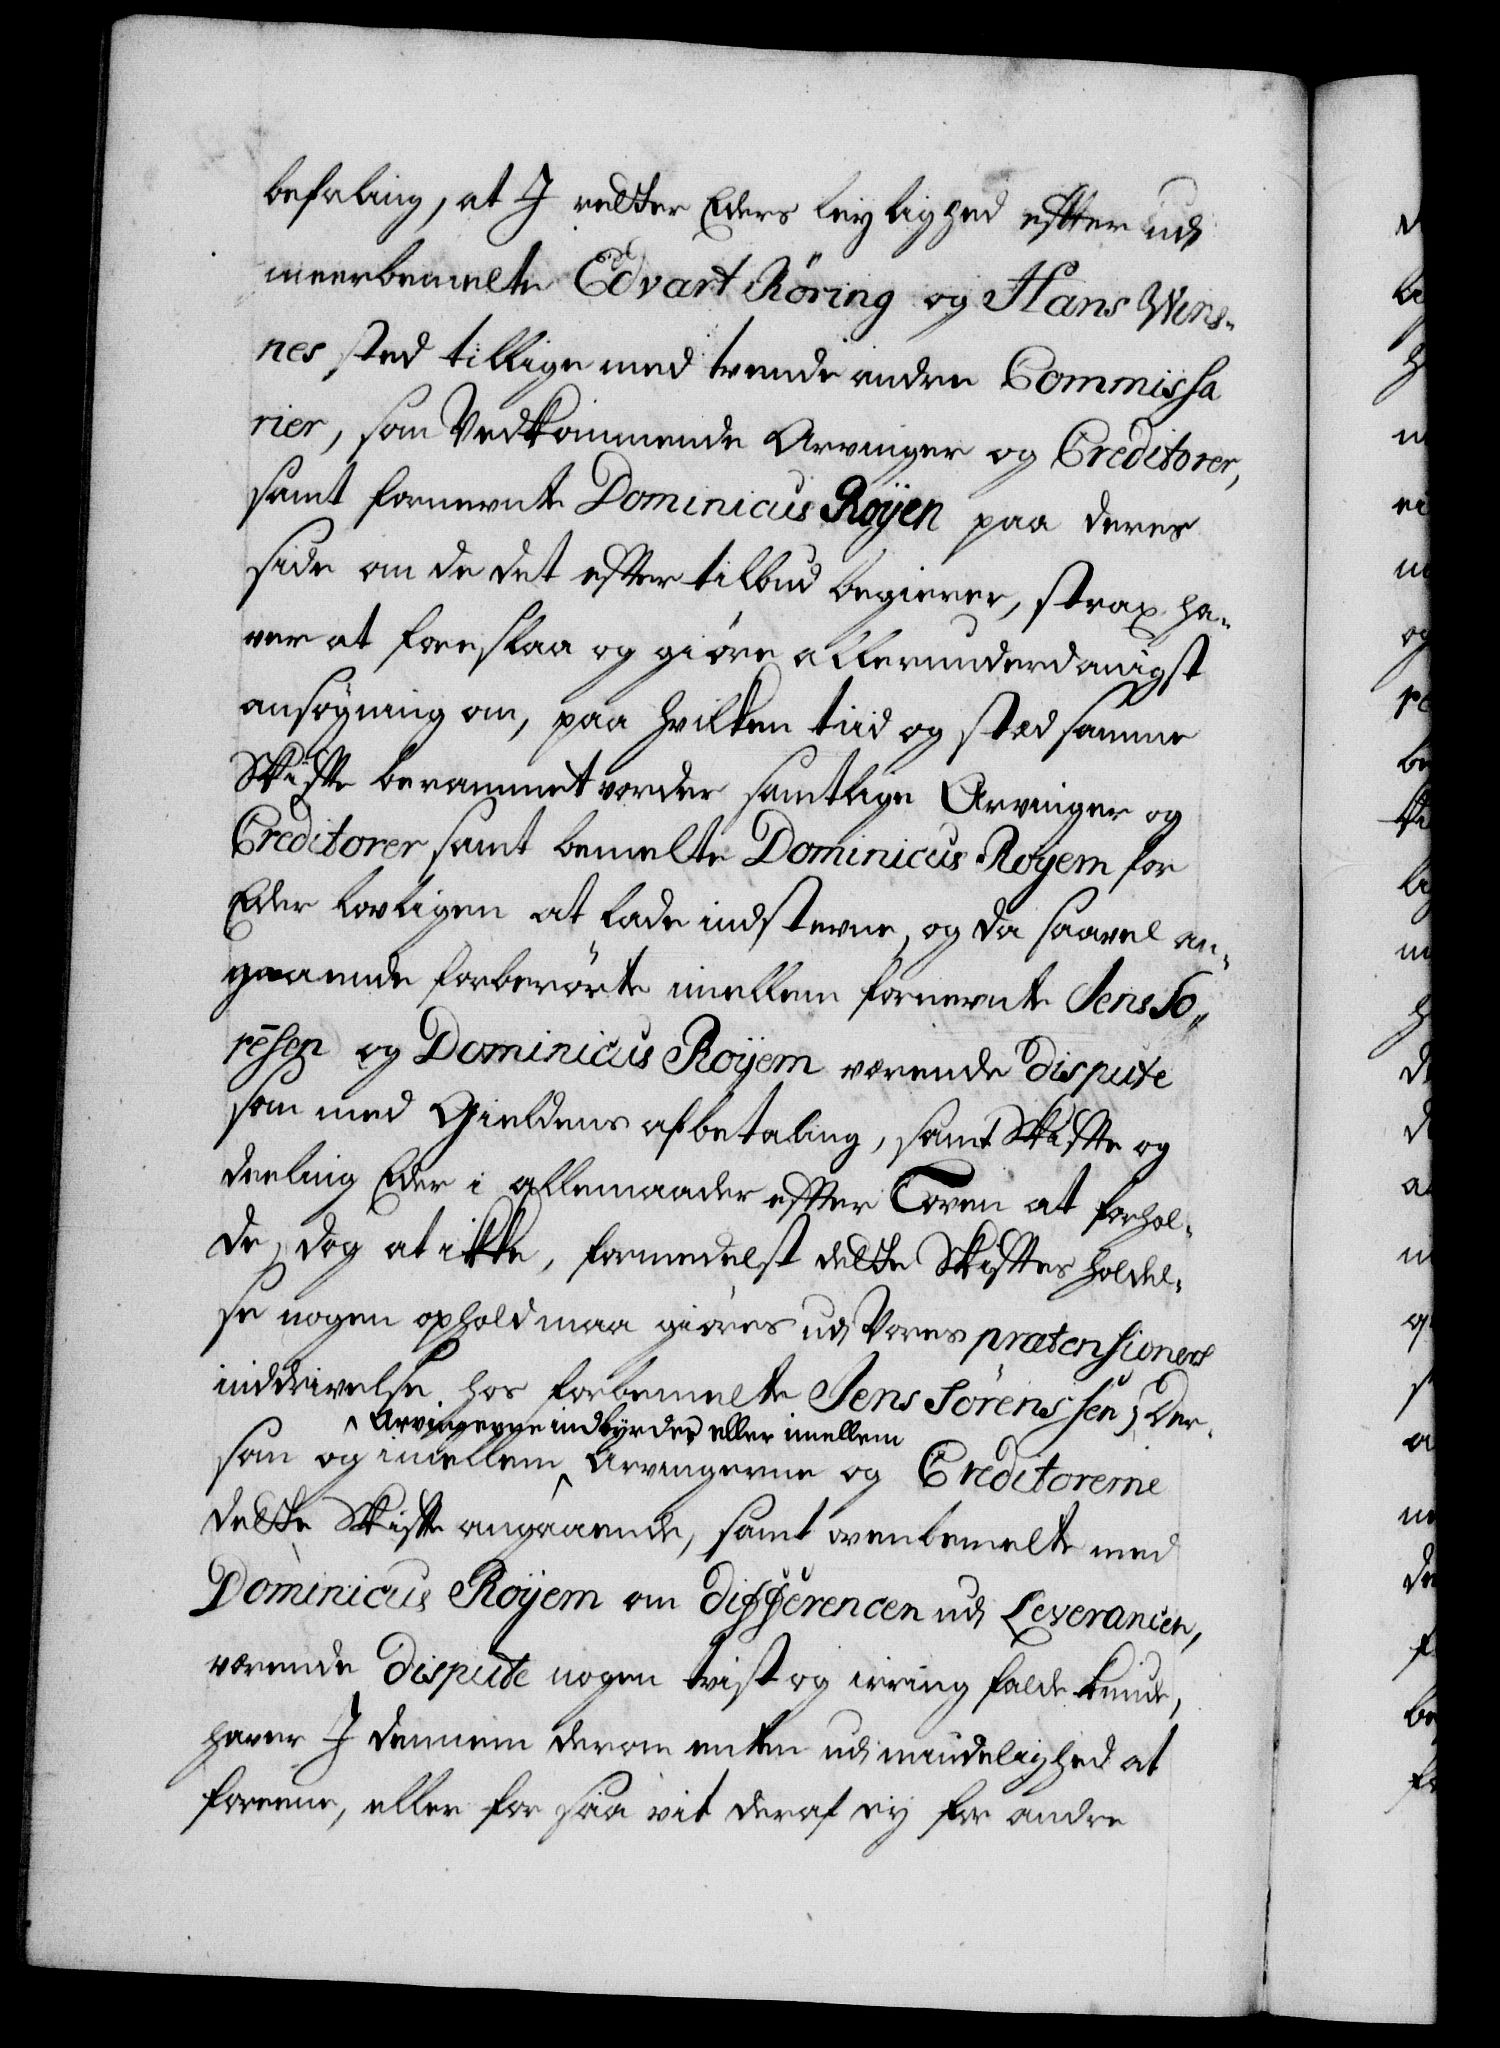 befaling, at I retter Eders leylighed effter udi
meerbemelte Edvart Röring og Hans Wins-
nes sted tillige med tvende andre Commissa
rier, som Vedkommende Arvinger og Creditorer,
samt fornevnte Dominicus Röyen paa deres
side om de det effter tilbud begierer, strax ha-
ver at foreslaa og giöre allerunderdanigst
ansögning om, paa hvilken tiid og stæd samme
Skiffte berammet vorder samtlige Arvinger og
Creditorer samt bemelte Dominicus Royem for
Eder lovligen at lade indstevne, og da saavel an-
gaaende forberörte imellem fornevnte Jens Sö-
rensen og Dominicus Roijem værende dispute
som med Gieldens afbetaling, samt Skiffte og
deeling Eder i allemaader effter Loven at forhol-
de, dog at ikke, formedelst dette Skifftes holdel-
se nogen ophold maa giöres udi Vores prætensioners
inddrivelse hos forbemelte Jens Sörenssen; Der-
^ Arvingerne indbyrdes eller imellem
som og imellem ^ Arvingerne og Creditorerne
dette Skiffte angaaende, samt ovenbemelte med
Dominicus Roijem om differencen udi Leverancen,
værende dispute nogen tvist og irring falde kunde,
haver I dennem derom enten udi mindelighed at
foreene, eller for saa vit deraf ey for andre